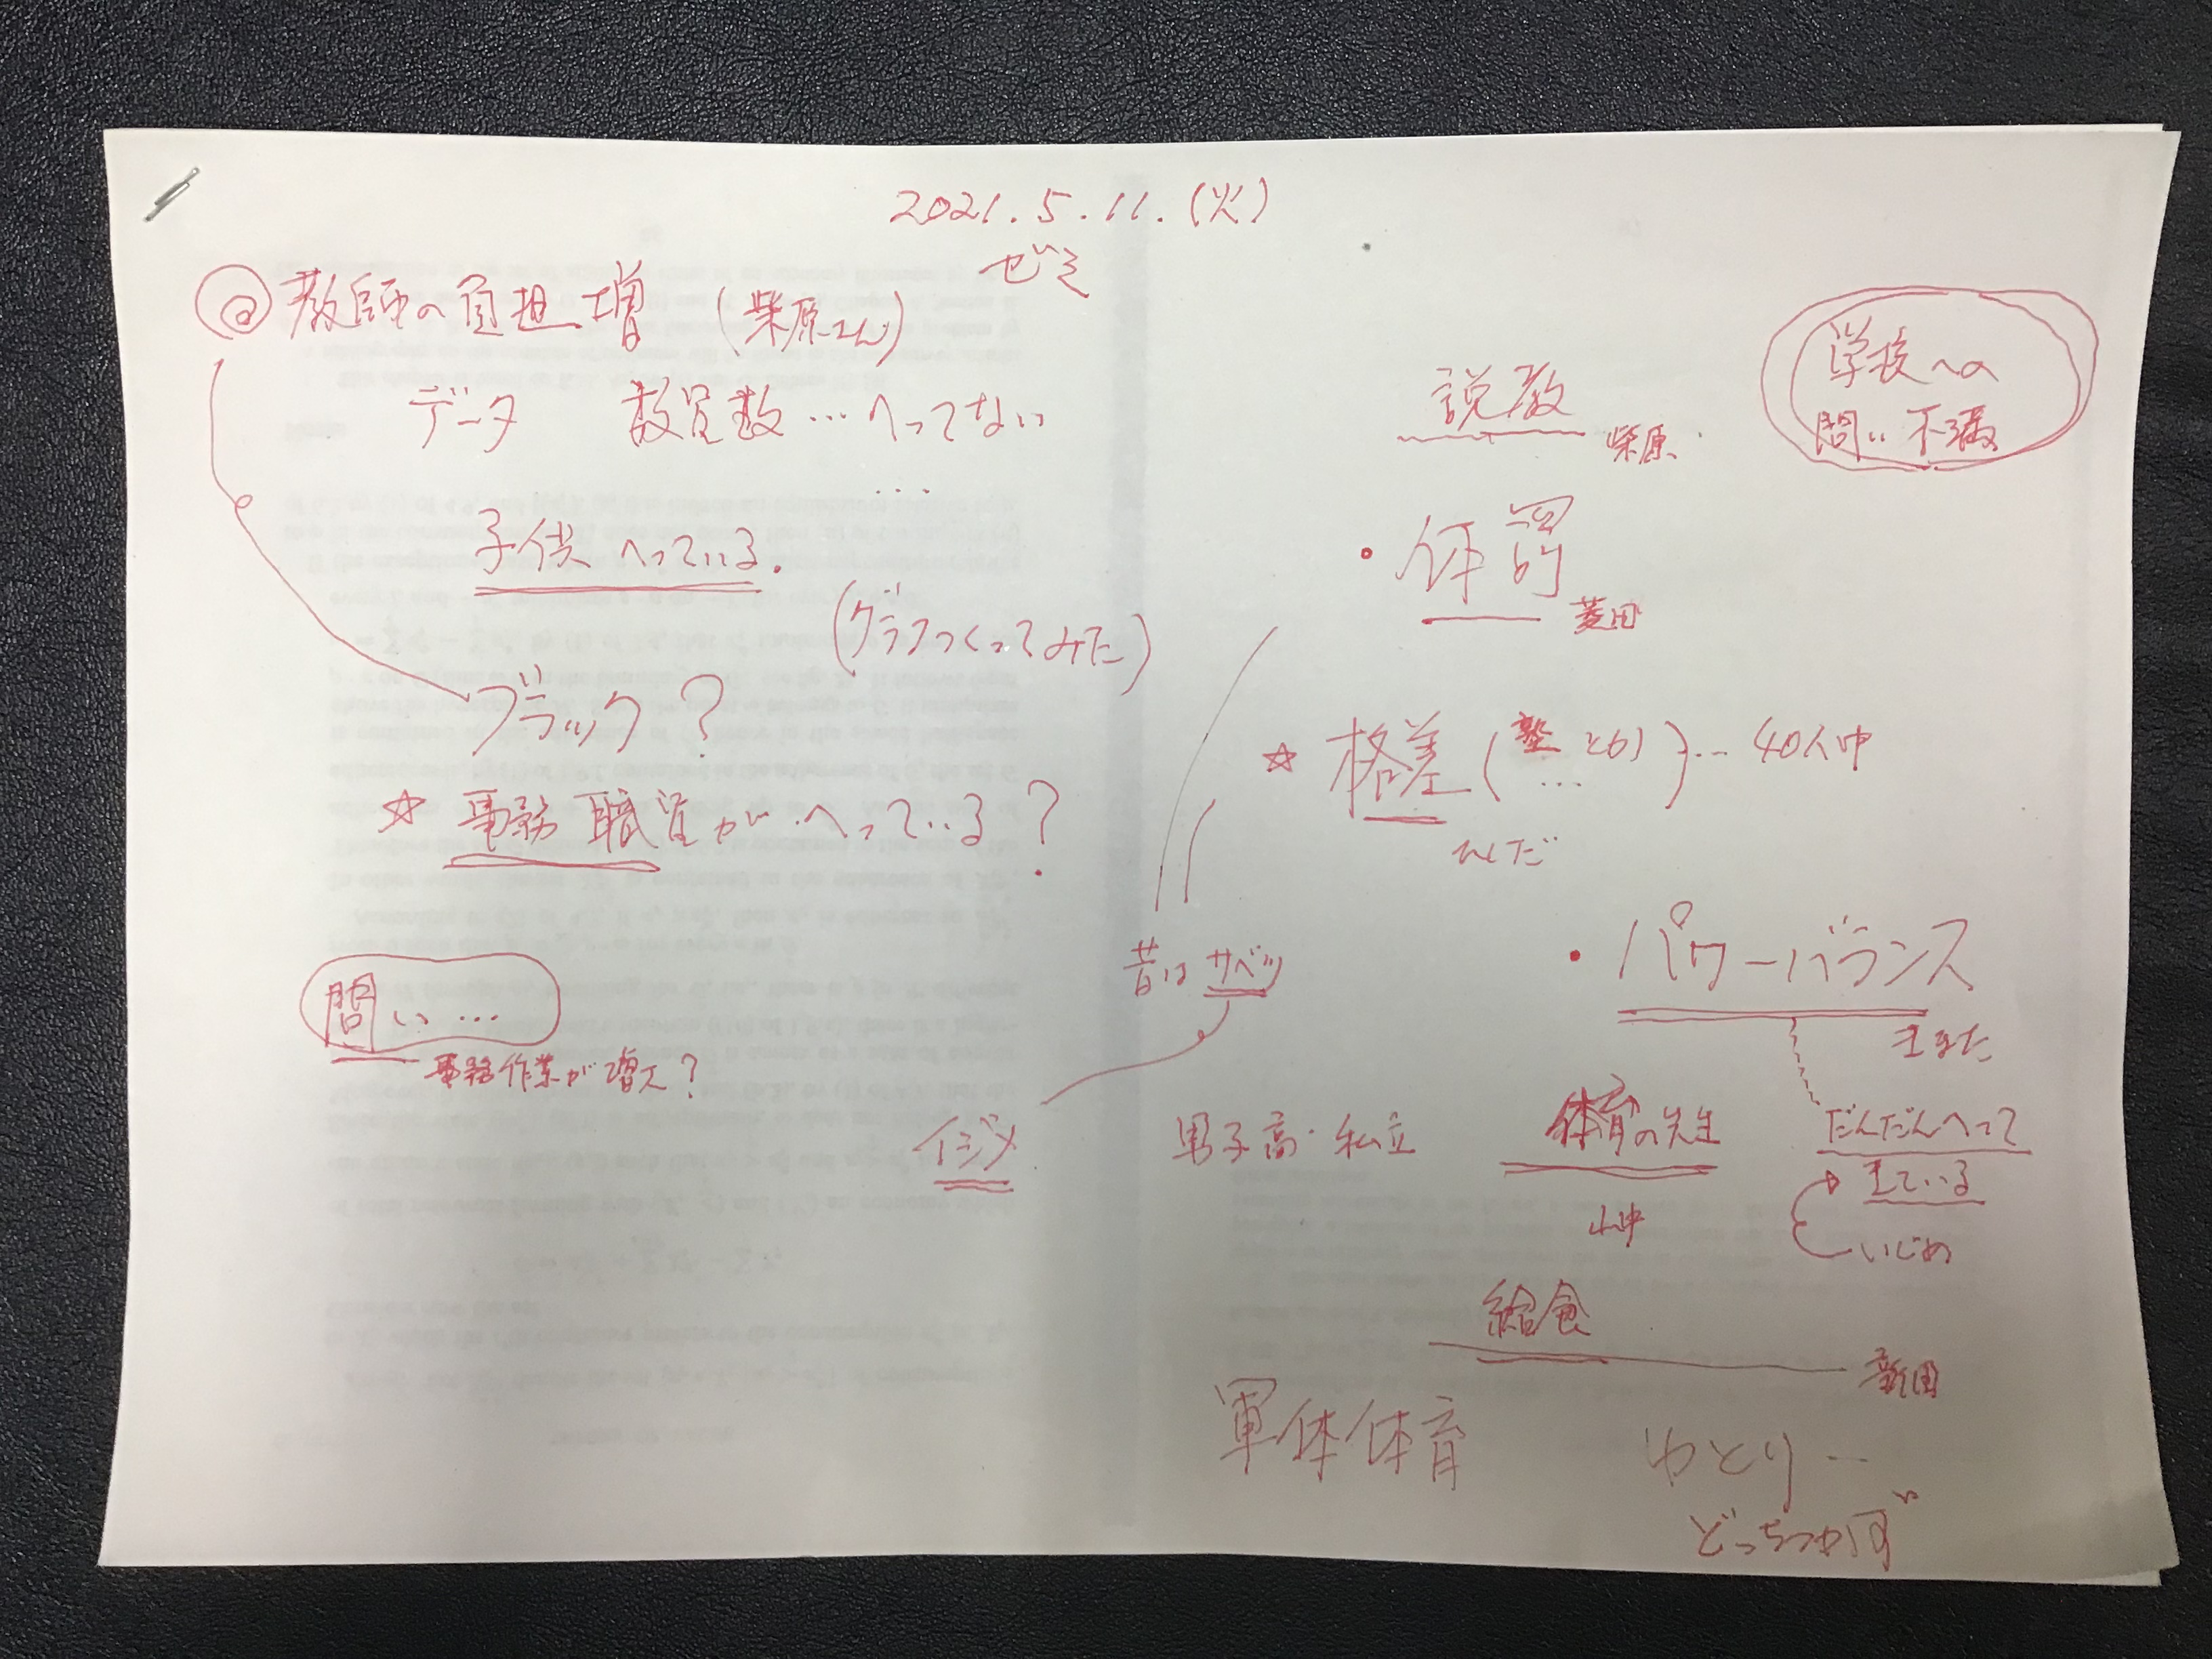 2021.5.11.(火)
ゼミ
◎教師の負担増 (柴原さん)
データ 教員数…へってない
…
子供へっている.
(グラフつくってみた)
ブラック?
☆ 事務職員がへっている?
問い…
事務作業が増え?
学校への
問い 不満
説教
柴原
・体罰
菱田
☆ 格差(塾とか)… 40人中
…
ひしだ
昔はサベツ
イジメ
・パワーバランス
きまた
だんだんへって
きている
いじめ
男子高・私立
体育の先生
山中
給食
新田
軍体体育
ゆとり…
どっちつかず